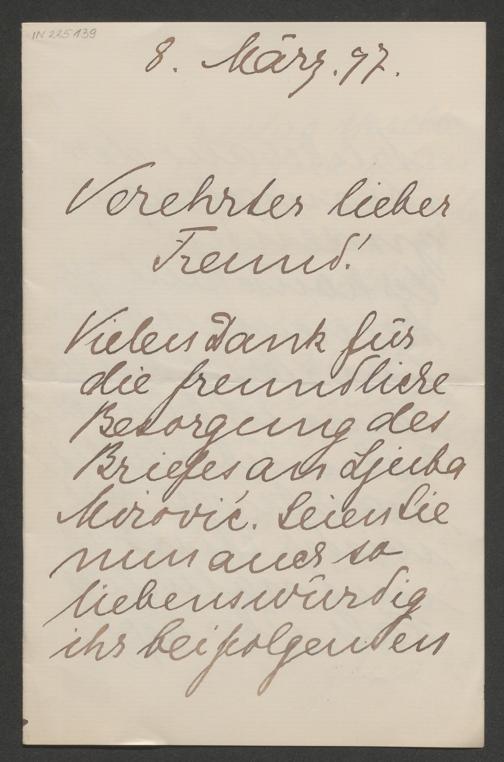 IN 225439
8. März. 97.
Verehrter lieber
Freund!
Vielen Dank für
die freundliche
Besorgung des
Briefes an Ljuba
Mirović. Seien Sie
nun auch so
liebenswürdig
ihr beifolgenden